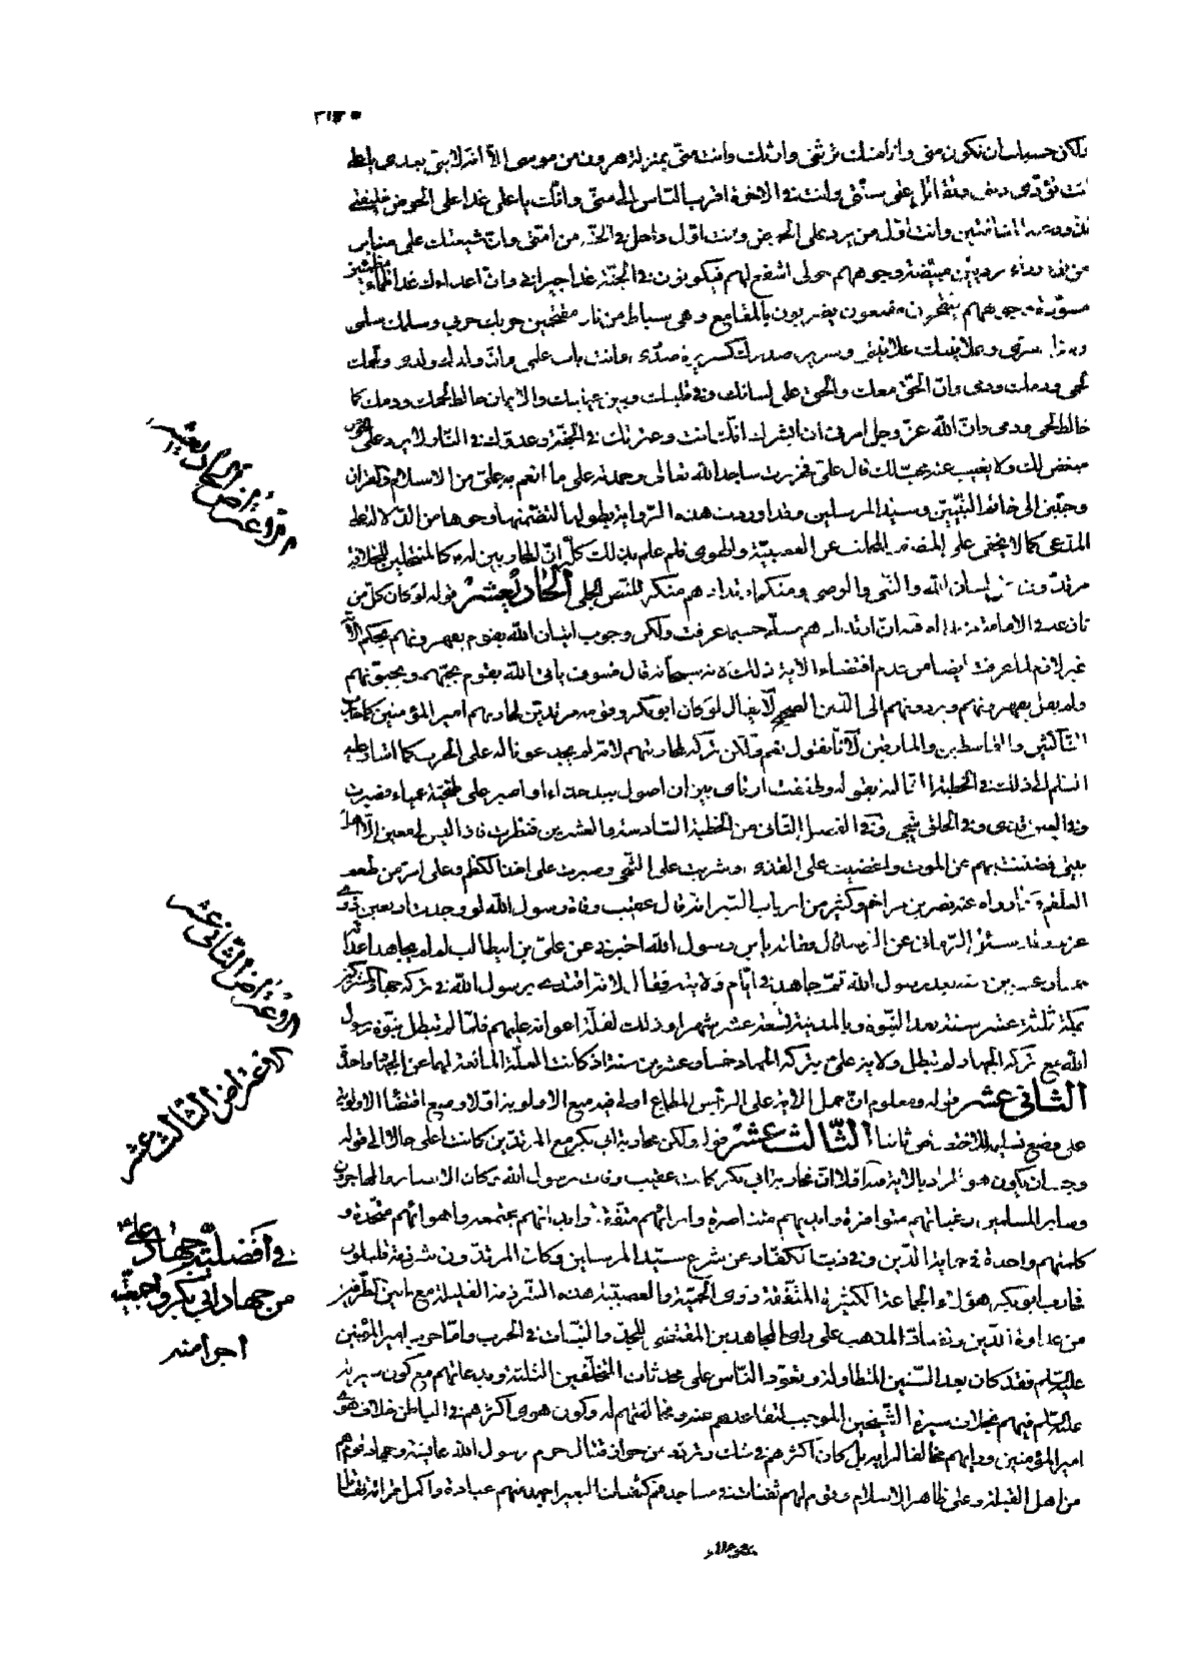 ولكن حسبك ان تكون منى وانا منك ترثنى وارثك وانت منى بمنزلة هرون من موسى الا انه لا نبى بعدى
انت تؤدى دينى وتقاتل على سنتى وانت فى الاخرة اقرب الناس الى منى وانك يا على غدا على الحوض خليفتى
وانت اول من يرد على الحوض وانت اول داخل فى الجنة من امتى وان شيعتك على منابر
من نور رواء مرويين مبيضة وجوههم حولى اشفع لهم فيكونون فى الجنة غدا جيرانى وان اعداءك غدا ظماء مظمئين
مسودة وجوههم مقمحون يضربون بالمقامع وهى سياط من نار مقتحمين حربك حربى وسلمك سلمى
سرى وعلانيتك علانيتى وسريرة صدرك كسريرة صدرى وانت باب علمى وان ولدك ولدى ولحمك
لحمى ودمك ودمى وان الحق معك والحق على لسانك وفى قلبك وبين عينيك والايمان خالط لحمك ودمك كما
خالط لحمى ودمى وان الله عز وجل امرنى ان ابشرك انك انت وعترتك فى الجنة وعدوك فى النار لا يرد على الحوض
مبغض لك ولا يغيب عنه محب لك قال على فخررت ساجدا لله تعالى وحمدته على ما انعم به على من الاسلام والقران
وحببنى الى خاتم النبيين وسيد المرسلين وقد اوردت هذه الرواية بطولها لتضمنها وحوها من الدلالة على
المدعى كما لا يخفى على المصنف المجانب عن العصبية والهوى فلم علم بذلك كله ان المحاربين له كالمنتحلين للخلافة
مرتدون على لسان الله والنبى والوصى ومنكر ارتدادهم منكر للنص الجلى الحاديعشر قوله لو كان كل من
نازعه فى الامامة مرتدا فيه ان ارتدادهم مسلم حسبما عرفت ولكن وجوب اتيان الله بقوم يقهرونهم بحكم الاية
غير لازم لما عرفت ايضا من عدم اقتضاء الاية ذلك لانه سبحانه قال فسوف ياتى الله بقوم يحبهم ويحبونهم
ولم يقل يقهرونهم ويردونهم الى الدين الصحيح لا يقال لو كان ابو بكر وقومه مرتدين لحاربهم امير المؤمنين كما حارب
الناكثين والقاسطين والمارقين لانا نقول نعم ولكن تركه لمحاربتهم لانه لم يجد عونا له على الحرب كما اشار عليه
السلم الى ذلك فى الخطبة الثالثة بقوله وطفقت ارتاى بين ان اصول بيد جذاء او اصبر على طخية عمياء فصبرت
وفى العين قذى وفى الحلق شجى وفى الفصل الثانى من الخطبة السادسة والعشرين فنظرت فاذا ليس لى معين الا اهل
بيتى فضننت بهم عن الموت واغضيت على القذى وشربت على الشجى وصبرت على اخذ الكظم وعلى امر من طعم
العلقم وما رواه عنه نصر بن مزاحم وكثير من ارباب السير انه قال عقيب وفاة رسول الله لو وجدت اربعين ذوى
عزم وقد سئل الرضا عن الرسائل فقال يابن رسول الله اخبرنى عن على بن ابيطالب لم لم يجاهد اعدائه
خمسا وعشرين سنة بعد رسول الله ثم جاهد فى ايام ولايته فقال لانه اقتدى برسول الله فى تركه جهاد المشركين
بمكة ثلثة عشر سنة بعد النبوة وبالمدينة تسعة عشر شهرا وذلك لقلة اعوانه عليهم فلما لم تبطل نبوة رسول
الله مع تركه الجهاد لم تبطل ولاية على بتركه الجهاد خمسا وعشرين سنة اذ كانت العلة المانعة لهما عن الجهاد واحدة
الثانى عشر قوله ومعلوم ان حمل الاية على الرئيس المطاع اولى فيه منع الاولوية اولا ومنع اقتضاء الاولوية
على وضع ثانيا الثالث عشر قوله ولكن محاربة ابى بكر مع المرتدين كانت اعلى حالا الى قوله
وجب ان يكون هو المراد بالاية فيه اولا ان محاربة ابى بكر كانت عقيب وفات رسول الله وكان الانصار والمهاجرون
وساير المسلمين رغباتهم متوافرة وايديهم متناصرة واراءهم متفقة وابدانهم مجتمعة واهوائهم متحدة و
كلمتهم واحدة فى حماية الدين وفى ذب الكفار عن شرع سيد المرسلين وكان المرتدون شرذمة قليلون
فحارب ابو بكر بهؤلاء الجماعة الكثيرة المتفقة ذوى الحمية والعصبية هذه الشرذمة القليلة مع ما بين الطرفين
من عداوة الدين ومضادة المذهب على راى المجاهدين المقتضى للجد والثبات فى الحرب واما حروب امير المؤمنين
عليه السلم فقد كان بعد السنين المتطاولة وتعود الناس على محدثات المتخلفين الثلثة وبدعاتهم مع كون سيرته
عليه السلم فيهم بخلاف سيرة الشيخين الموجب لتقاعدهم عنه ومخالفتهم له وكون هوى اكثرهم فى الباطن خلاف هوى
امير المؤمنين ورايهم مخالفا لرايه بل كان اكثرهم فى شك وتردد من جواز قتال حرم رسول الله عايشة وجهاد قوم هم
من اهل القبلة وعلى ظاهر الاسلام وقوم لهم ثفنات فى مساجدهم كثفنات البعير اجهد منهم عبادة واكمل قرائة
الاعتراض الحاديعشر
الاعتراض الثانى عشر
الاعتراض الثالث عشر
فى افضلية جهاد على ع
من جهاد ابى بكر واجمعية
اجرا منه